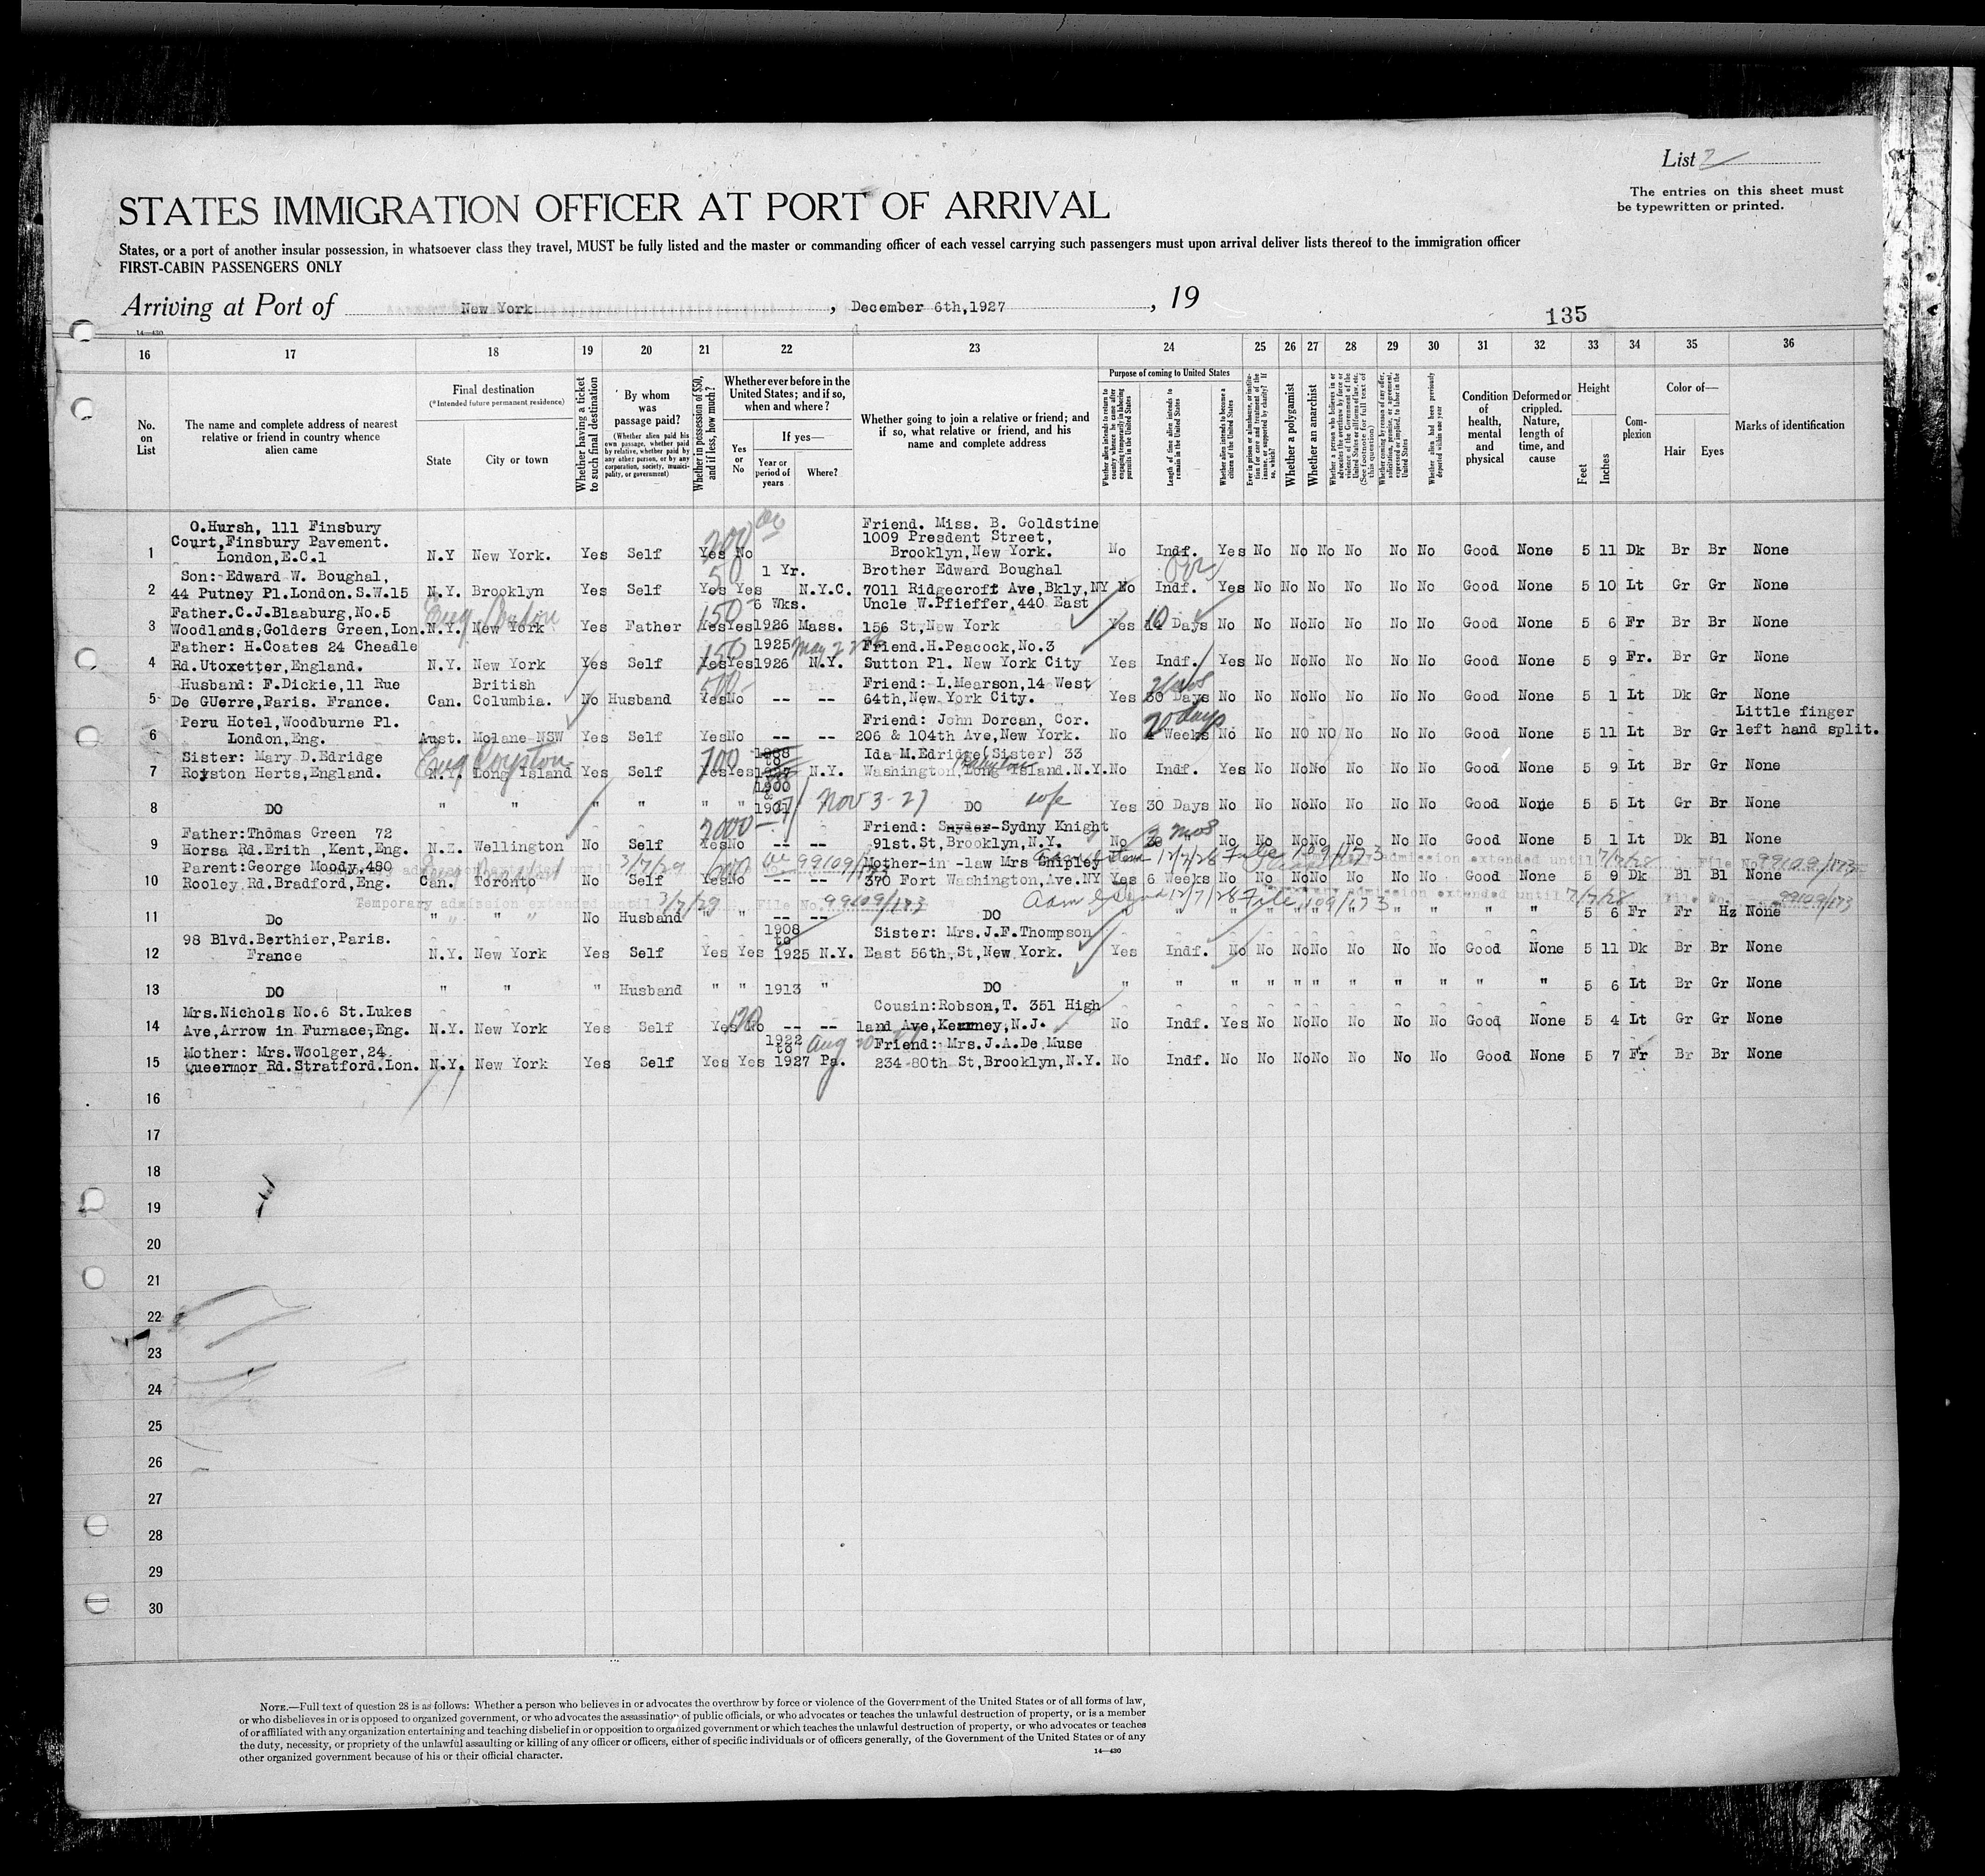 List 2
The entries on this sheet must
be typewritten or printed.
STATES IMMIGRATION OFFICER AT PORT OF ARRIVAL
States, or a port of another insular possession, in whatsoever class they travel, MUST be fully listed and the master or commanding officer of each vessel carrying such passengers must upon arrival deliver lists thereof to the immigration officer
FIRST-CABIN PASSENGERS ONLY
Arriving at Port of New York, December 6th,1927, 19
135
14—430
16 17 18 19 20 21 22 23 24 25 26 27 28 29 30 31 32 33 34 35 36
No. on List
The name and complete address of nearest relative or friend in country whence alien came
Final destination
(*Intended future permanent residence)
State
City or town
Whether having a ticket to such final destination
By whom was passage paid?
(Whether alien paid his own passage, whether paid by relative, whether paid by any other person, or by any corporation, society, municipality, or government)
Whether in possession of $50, and if less, how much?
Whether ever before in the United States; and if so, when and where?
Yes or No
If yes—
Year or period of years
Where?
Whether going to join a relative or friend; and if so, what relative or friend, and his name and complete address
Purpose of coming to United States
Whether alien intends to return to country whence he came after engaging temporarily in laboring pursuits in the United States
Length of time alien intends to remain in the United States
Whether alien intends to become a citizen of the United States
Whether a polygamist
Whether an anarchist
Condition of health, mental and physical
Deformed or crippled. Nature, length of time, and cause
Height
Feet
Inches
Complexion
Color of—
Hair
Eyes
Marks of identification
O.Hursh, 111 Finsbury Friend. Miss. B. Goldstine
Court,Finsbury Pavement. 200 1009 Presdent Street,
1 London,E.C.1 N.Y New York. Yes Self Yes No Brooklyn,New York. No Indf. Yes No No No No No No Good None 5 11 Dk Br Br None
Son: Edward W. Boughal, 50 1 Yr. Brother Edward Boughal
2 44 Putney Pl.London.S.W.15 N.Y. Brooklyn Yes Self Yes Yes N.Y.C. 7011 Ridgecroft Ave,Bkly,NY No Indf. Yes No No No No No No Good None 5 10 Lt Gr Gr None
Father.C.J.Blaaburg,No.5 150 6 Wks. Uncle W.Pfieffer,440 East
3 Woodlands,Golders Green,Lon. N.Y. New York Yes Father Yes Yes 1926 Mass. 156 St,New York Yes 10 Days No No No No No No No Good None 5 6 Fr Br Br None
Father: H.Coates 24 Cheadle 150 1925 May 22 Friend.H.Peacock,No.3
4 Rd.Utoxetter,England. N.Y. New York Yes Self Yes Yes 1926 N.Y. Sutton Pl. New York City Yes Indf. Yes No No No No No No Good None 5 9 Fr. Br Gr None
Husband: F.Dickie,11 Rue British 500 Friend: L.Mearson,14 West
5 De GUerre,Paris. France. Can. Columbia. No Husband Yes No -- -- 64th,New York City. Yes 30 Days No No No No No No No Good None 5 1 Lt Dk Gr None
Peru Hotel,Woodburne Pl. Friend: John Dorcan, Cor. 20 days Little finger
6 London,Eng. Aust. Molane NSW Yes Self Yes No -- -- 206 & 104th Ave,New York. No Weeks No No No No No No No Good None 5 11 Lt Br Gr left hand split.
Sister: Mary D.Edridge Eng Royston 100 1888 to Ida M.Edridge(Sister) 33
7 Royston Herts,England. N.Y. Long Island Yes Self Yes Yes 1927 N.Y. Washington,Long Island.N.Y. No Indf. Yes No No No No No No Good None 5 9 Lt Br Gr None
1900 &
8 DO " " " " " " 1901 Nov 3-27 DO wife Yes 30 Days No No No No No No No Good None 5 5 Lt Gr Br None
Father:Thomas Green 72 2000 Friend: Snyder-Sydny Knight
9 Horsa Rd.Erith ,Kent,Eng. N.Z. Wellington No Self Yes No -- -- 91st.St,Brooklyn,N.Y. No 3 mos No No No No No No No Good None 5 1 Lt Dk Bl None
Parent:George Moody,480 3/7/29 99109/173 Mother-in -law Mrs Shipley 12/7/28 File 109/173 admission extended until 7/7/28 File No. 99109/173
10 Rooley Rd.Bradford,Eng. Can. Toronto No Self Yes No -- -- 370 Fort Washington,Ave.NY Yes 6 Weeks No No No No No No No Good None 5 9 Dk Bl Bl None
Temporary admission extended until 3/7/29 File No. 99109/173 12/7/28 File 109/173 Temporary admission extended until 7/7/28 File No. 99109/173
11 Do " " No Husband " " -- -- DO " " " " " " " " " " " 5 6 Fr Fr Hz None
98 Blvd.Berthier,Paris. 1908 to Sister: Mrs.J.F.Thompson
12 France N.Y. New York Yes Self Yes Yes 1925 N.Y. East 56th,St,New York. Yes Indf. No No No No No No No Good None 5 11 Dk Br Br None
13 DO " " " Husband " " 1913 " DO " " " " " " " " " " " 5 6 Lt Br Gr None
Mrs.Nichols No.6 St.Lukes 120 Cousin:Robson,T. 351 High
14 Ave,Arrow in Furnace,Eng. N.Y. New York Yes Self Yes No -- -- land Ave,Kearney,N.J. No Indf. Yes No No No No No No Good None 5 4 Lt Gr Gr None
Mother: Mrs.Woolger,24 1922 to Aug Friend: Mrs.J.A.De Muse
15 Queermor Rd.Stratford.Lon. N.Y. New York Yes Self Yes Yes 1927 Pa. 234 80th St,Brooklyn,N.Y. No Indf. No No No No No No No Good None 5 7 Fr Br Br None
16
17
18
19
20
21
22
23
24
25
26
27
28
29
30
NOTE.—Full text of question 28 is as follows: Whether a person who believes in or advocates the overthrow by force or violence of the Government of the United States or of all forms of law,
or who disbelieves in or is opposed to organized government, or who advocates the assassination of public officials, or who advocates or teaches the unlawful destruction of property, or is a member
of or affiliated with any organization entertaining and teaching disbelief in or opposition to organized government or which teaches the unlawful destruction of property, or who advocates or teaches
the duty, necessity, or propriety of the unlawful assaulting or killing of any officer or officers, either of specific individuals or of officers generally, of the Government of the United States or of any
other organized government because of his or their official character.
14—430